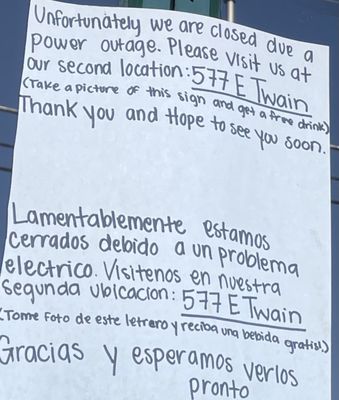 Unfortunately we are closed due a
power outage. Please visit us at
our second location: 577 E Twain
(Take a picture of this sign and get a free drink)
Thank you and Hope to see you soon.
Lamentablemente estamos
cerrados debido a un problema
electrico. Visitenos en nuestra
segunda ubicacion: 577 E Twain
(Tome Foto de este letrero y reciba una bebida gratis!)
Gracias y esperamos verlos
pronto